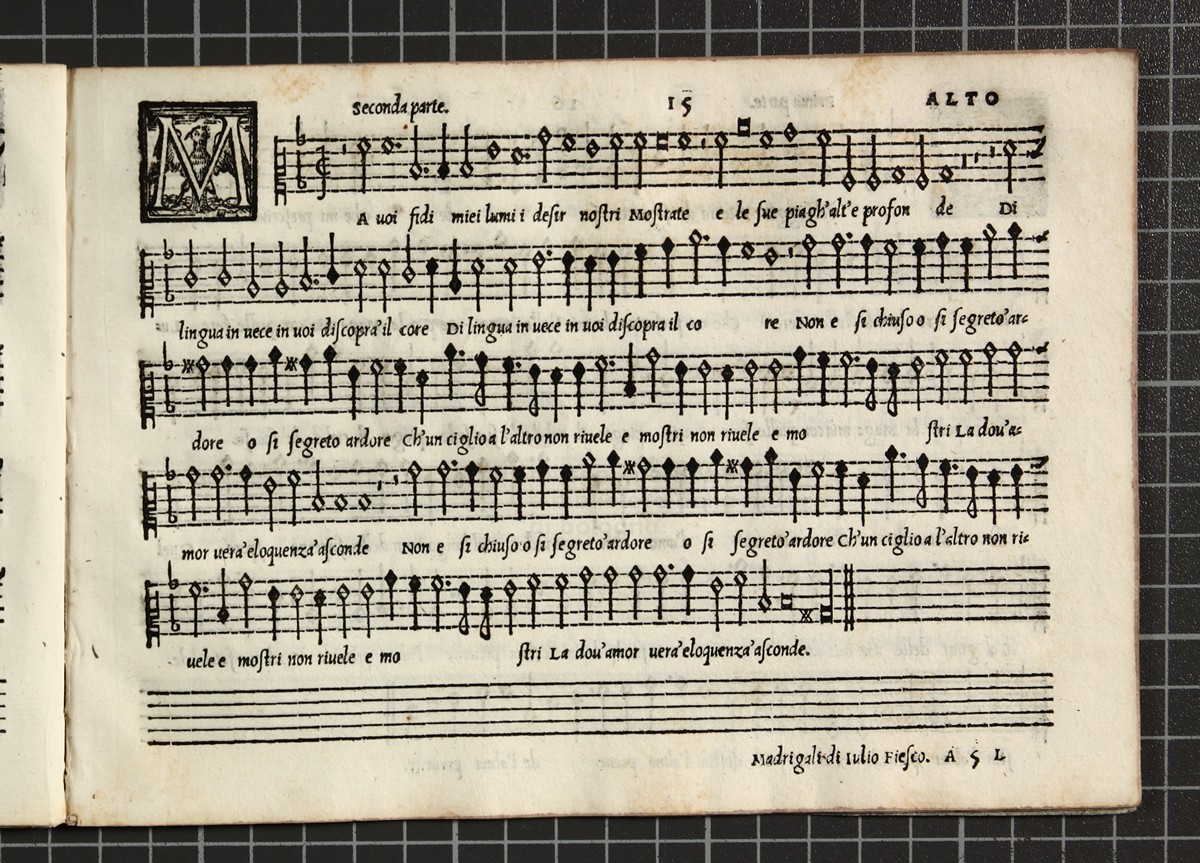 Seconda parte. 15 ALTO
M A uoi fidi miei lumi i desir nostri Mostrate e le sue piagh'alt'e profon de Di
lingua in uece in uoi discopra'il core Di lingua in uece in uoi discopra il co re Non e si chiuso o si segreto'ar=
dore o si segreto ardore Ch'un ciglio a l'altro non riuele e mostri non riuele e mo stri La dou'a=
mor uera'eloquenza'asconde Non e si chiuso o si segreto'ardore o si segreto'ardore Ch'un ciglio a l'altro non ri=
uele e mostri non riuele e mo stri La dou'amor uera'eloquenza'asconde.
Madrigali di Iulio Fiesco. A 5 L